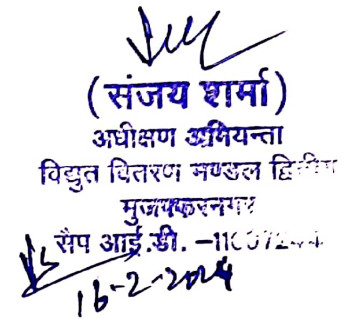 (संजय शर्मा)
अधीक्षण अभियन्ता
विद्युत वितरण मण्डल
मुजफ्फरनगर
सैप आई.डी.
16-2-2024